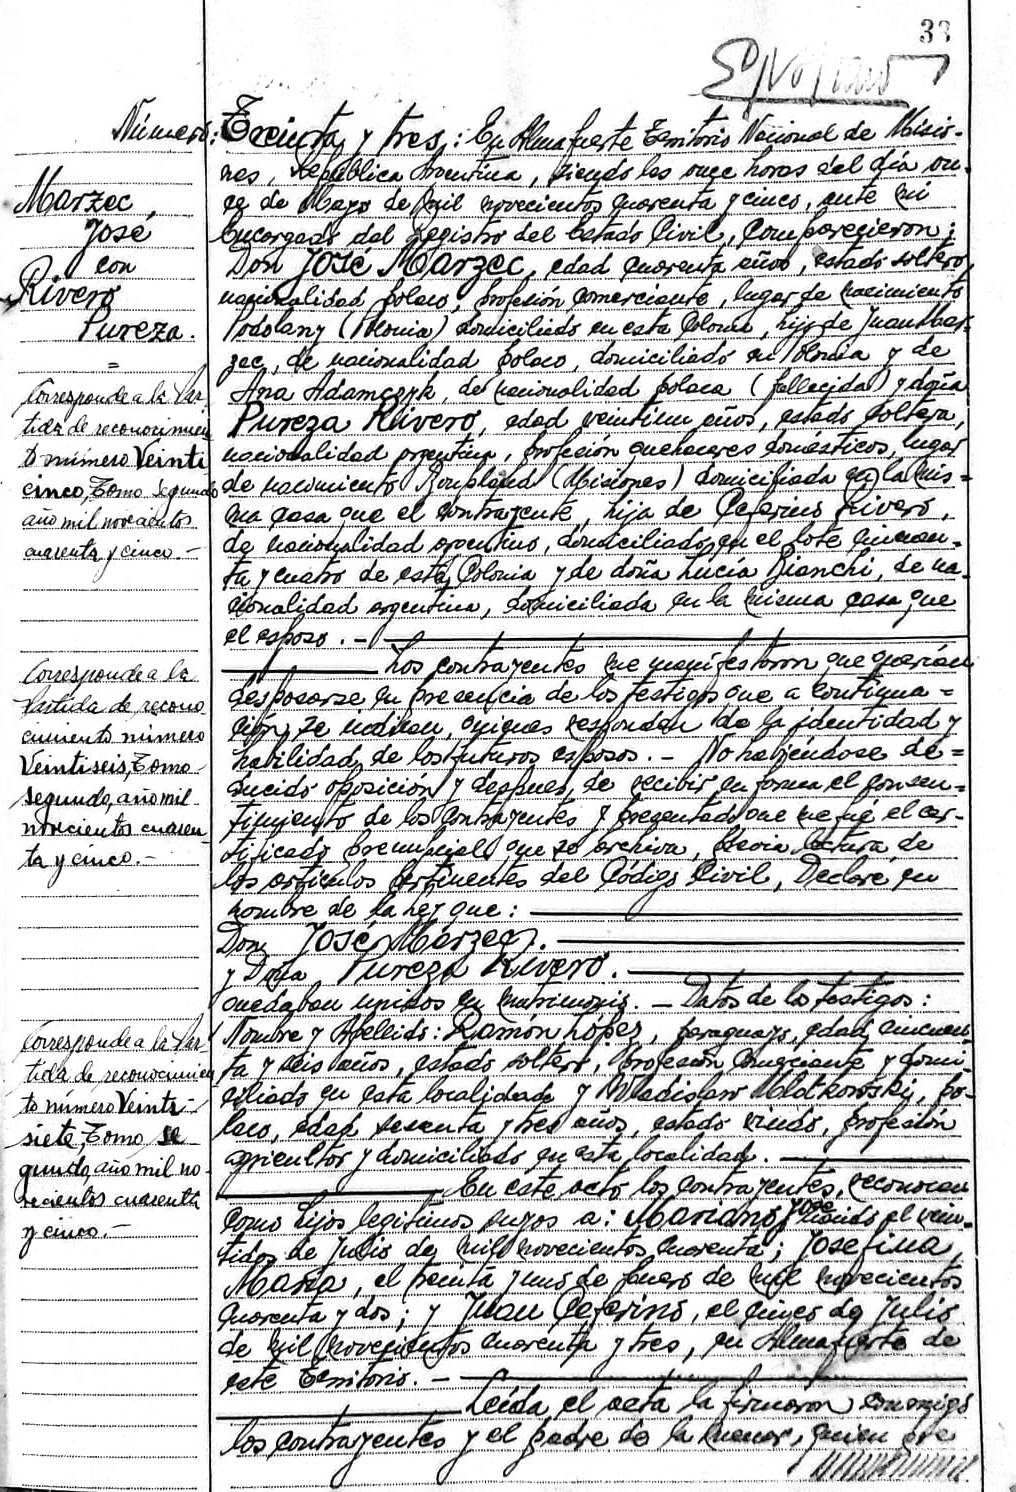 33
Número: Treinta y tres: En Almafuerte Territorio Nacional de Misio-
nes, República Argentina, siendo las once horas del día on-
ce de Mayo de mil novecientos cuarenta y cinco, ante mi
Encargado del Registro del Estado Civil, Comparecieron:
Don José Marzec, edad cuarenta años, estado soltero,
nacionalidad polaco, profesión comerciante, lugar de nacimiento
Podolany (Polonia) domiciliado en esta Colonia, hijo de Juan Mar-
zec, de nacionalidad polaco, domiciliado en Polonia y de
Ana Adamczyk, de nacionalidad polaca (fallecida) y doña
Pureza Rivero, edad veintiun años, estado soltera,
nacionalidad argentina, profesión quehaceres domésticos, lugar
de nacimiento Bonpland (Misiones) domiciliada en la mis-
ma casa que el contrayente, hija de Ceferino Rivero,
de nacionalidad argentino, domiciliado en el lote cincuen-
ta y cuatro de esta Colonia y de doña Lucía Bianchi, de na-
cionalidad argentina, domiciliada en la misma casa que
el esposo.-
Los contrayentes me manifestaron que querían
desposarse en presencia de los testigos que a continua-
ción se indican, quienes responden de la identidad y
habilidad de los futuros esposos.- No habiéndose de-
ducido oposición y después de recibir en forma el consen-
timiento de los contrayentes y presentado que me fué el cer-
tificado prenupcial que se archiva, previa lectura de
los artículos pertinentes del Código Civil, Declaré en
nombre de la ley que:
Don José Marzec.
y Doña Pureza Rivero.
quedaban unidos en matrimonio. - Datos de los testigos:
Nombre y Apellido: Ramón López, paraguayo, edad cincuen-
ta y seis años, estado soltero, profesión comerciante y domi-
ciliado en esta localidad y Wladislaw, po-
laco, edad sesenta y tres años, estado viudo, profesión
agricultor y domiciliado en esta localidad.
En este acto los contrayentes, reconocen
como hijos legítimos suyos a: Mariano José nacido el vein-
tidos de Julio de mil novecientos cuarenta; Josefina
María, el treinta y uno de Enero de mil novecientos
cuarenta y dos; y Juan Ceferino, el quince de Julio
de mil novecientos cuarenta y tres, en Almafuerte de
este Territorio.-
Leída el acta la firmaron conmigo
los contrayentes y el padre de la menor, quien
Marzec,
José
con
Rivero
Pureza.
=
Corresponde a la Par-
tida de reconocimien
to número Veinti
cinco, Tomo segundo
año mil novecientos
cuarenta y cinco.-
Corresponde a la
Partida de recono
cimiento número
Veintiseis, Tomo
segundo, año mil
novecientos cuaren
ta y cinco.-
Corresponde a la Par-
tida de reconocimien
to número Veinti-
siete, Tomo se
gundo, año mil no-
vecientos cuarenta
y cinco.-